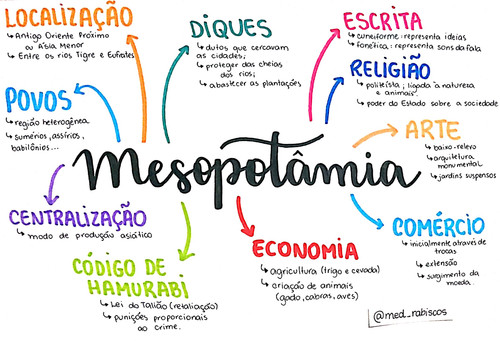 LOCALIZAÇÃO
↳ Antigo Oriente Próximo
ou Ásia Menor
↳ Entre os rios Tigre e Eufrates
DIQUES
↳ dutos que cercavam
as cidades;
↳ proteger das cheias
dos rios;
↳ abastecer as plantações
ESCRITA
↳ cuneiforme: representa ideias
↳ fonética: representa sons da fala
RELIGIÃO
↳ politeísta; ligada à natureza
e animais.
↳ poder do Estado sobre a sociedade
POVOS
↳ região heterogênea
↳ sumérios, assírios,
babilônios...
ARTE
↳ baixo-relevo
↳ arquitetura
monumental
↳ jardins suspensos
Mesopotâmia
CENTRALIZAÇÃO
↳ modo de produção asiático
CÓDIGO DE
HAMURABI
↳ Lei do Talião (retaliação)
↳ punições proporcionais
ao crime.
ECONOMIA
↳ agricultura (trigo e cevada)
↳ criação de animais
(gado, cabras, aves)
COMÉRCIO
↳ inicialmente através de
trocas
↳ extensão
↳ surgimento da
moeda
@med_rabiscos